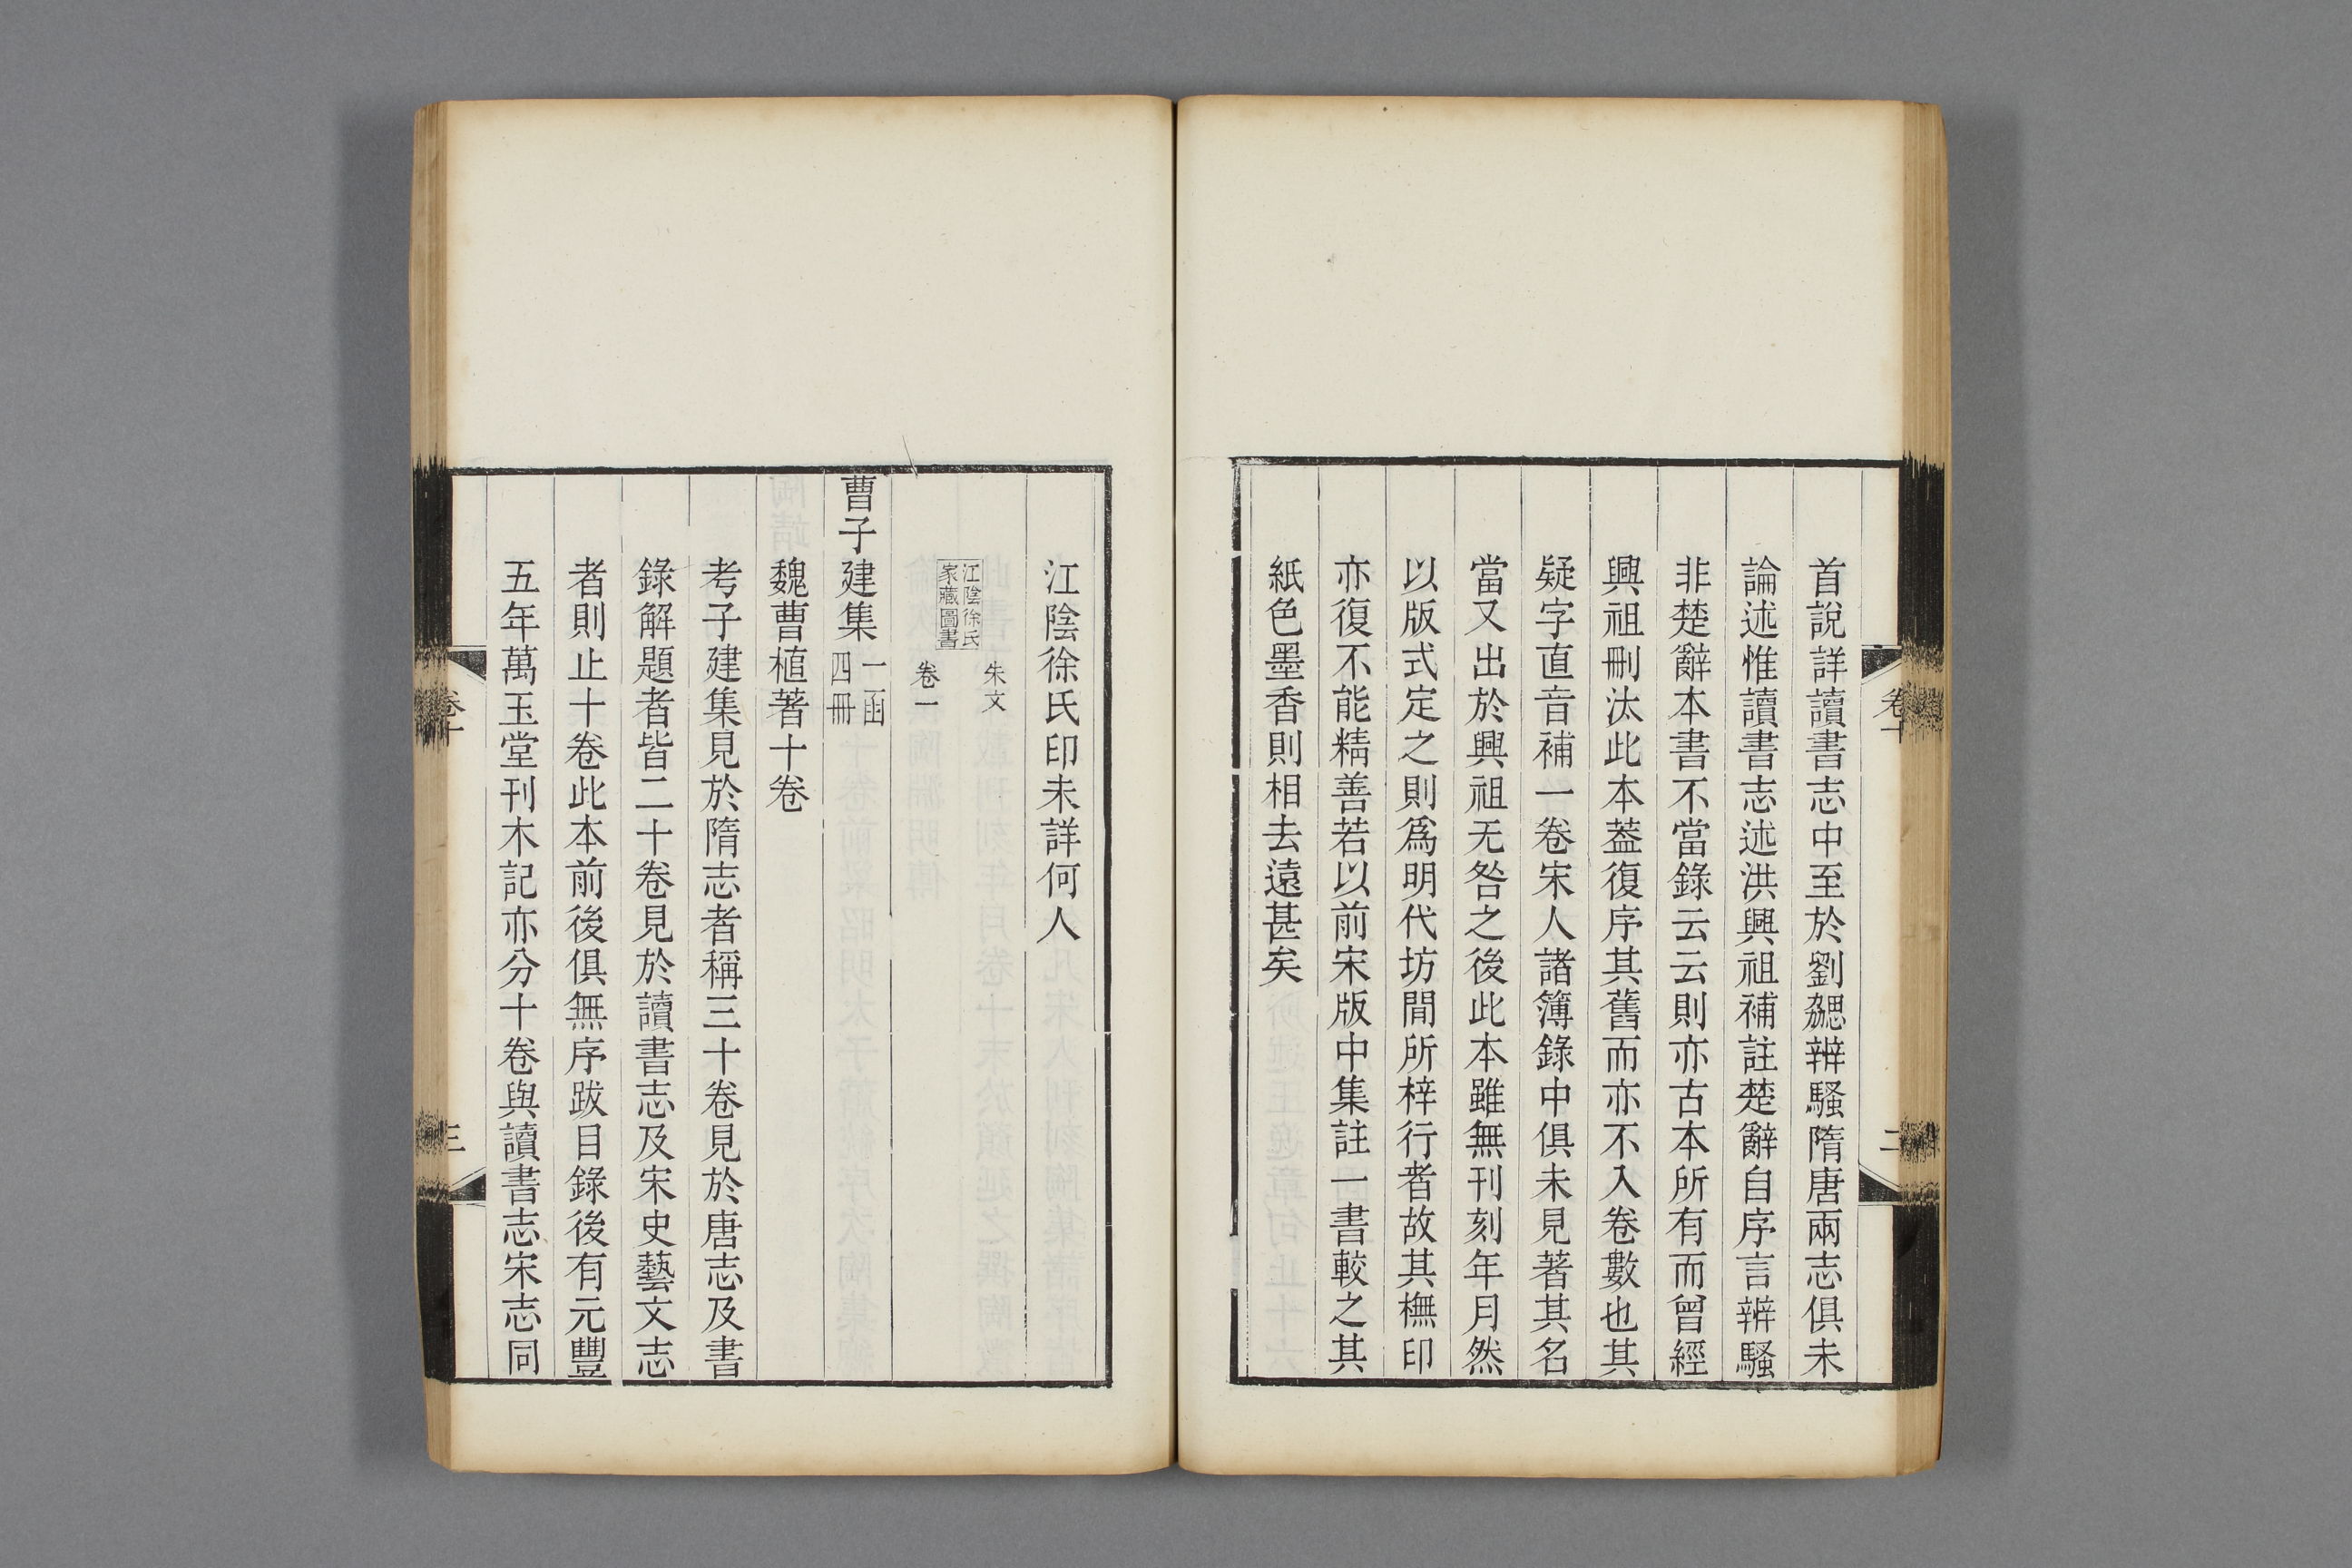 首說詳讀書志中至於劉勰辨騷隋唐兩志俱未
論述惟讀書志述洪興祖補註楚辭自序言辨騷
非楚辭本書不當錄云云則亦古本所有而曾經
興祖刪汰此本蓋復序其舊而亦不入卷數也其
疑字直音補一卷宋人諸簿錄中俱未見著其名
當又出於興祖无咎之後此本雖無刊刻年月然
以版式定之則爲明代坊間所梓行者故其橅印
亦復不能精善若以前宋版中集註一書較之其
紙色墨香則相去遠甚矣
江陰徐氏印未詳何人
朱文
江陰徐氏
家藏圖書
卷一
曹子建集
一函
四冊
魏曹植著十卷
考子建集見於隋志者稱三十卷見於唐志及書
錄解題者皆二十卷見於讀書志及宋史藝文志
者則止十卷此本前後俱無序跋目錄後有元豐
五年萬玉堂刊木記亦分十卷與讀書志宋志同